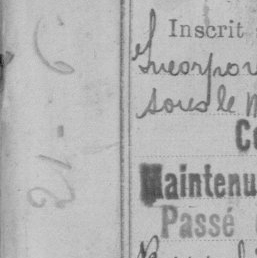 21-6
Inscrit
Incorpor
sous le
Co
Maintenu
Passé